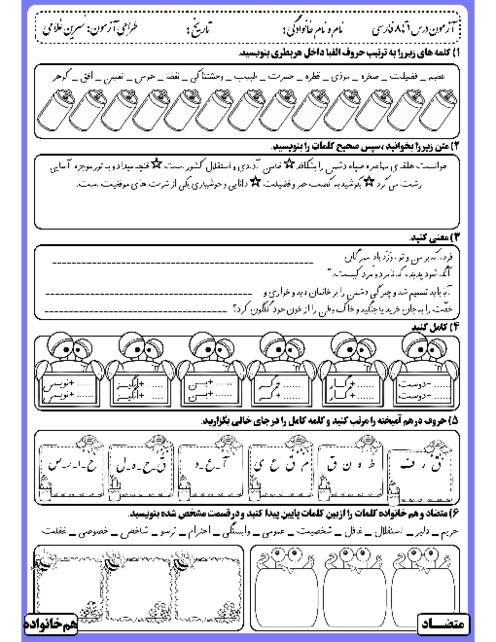 آزمون درس ۱ تا ۸ فارسی نام و نام خانوادگی: تاریخ: طراحی آزمون: نسرین غلامی
۱) کلمه های زیر را به ترتیب حروف الفبا داخل هر بطری بنویسید.
عظیم _ فضیلت _ صخره _ موذی _ قطره _ حسرت _ طبیب _ وحشتناکی _ نقطه _ هوس _ تعیین _ افق _ گوهر
۲) متن زیر را بخوانید ،سپس صحیح کلمات را بنویسید.
توانست حلقه‌ی مهاصره سپاه دشمن را بشکافد ☆ ضامن آزادی و استقلال کشور است ☆
رشت می کرد ☆ بکوشید به کصب خیر و فضیلت ☆ دانایی و هوشیاری یکی از شرت های موفقیت است.
۳) معنی کنید.
فردا که بر من و تو وزد باد مهرگان
آنگه شود پدید که نامرد و مرد کیست."
آیا باید تسلیم شد و چیرگی دشمن را بر خانمان دید و خواری و
خفّت را به جان خرید یا جنگید و خاک وطن را از خون خود گلگون کرد؟
۴) کامل کنید
..... –دوست ..... +گار ..... +گر ..... +بین ..... +انگیز ..... +نویس
..... –دوست ..... +گار ..... +گر ..... +بین ..... +انگیز ..... +نویس
۵) حروف درهم آمیخته را مرتب کنید و کلمه کامل را در جای خالی بگزارید.
ق ر ف ت ط ه ن ق م ق ع ی آ _ ع _ د ق_ج_ه_ل ح _ ا _ ر _ س
۶) متضاد و هم خانواده کلمات را از بین کلمات پایین پیدا کنید و در قسمت مشخص شده بنویسید.
حریم _ دلیر _ استقلال _ غافل _ شخصیت _ عمومی _ وابستگی _ احترام _ ترسو _ شاخص _ خصوصی _ غفلت
متضاد هم خانواده